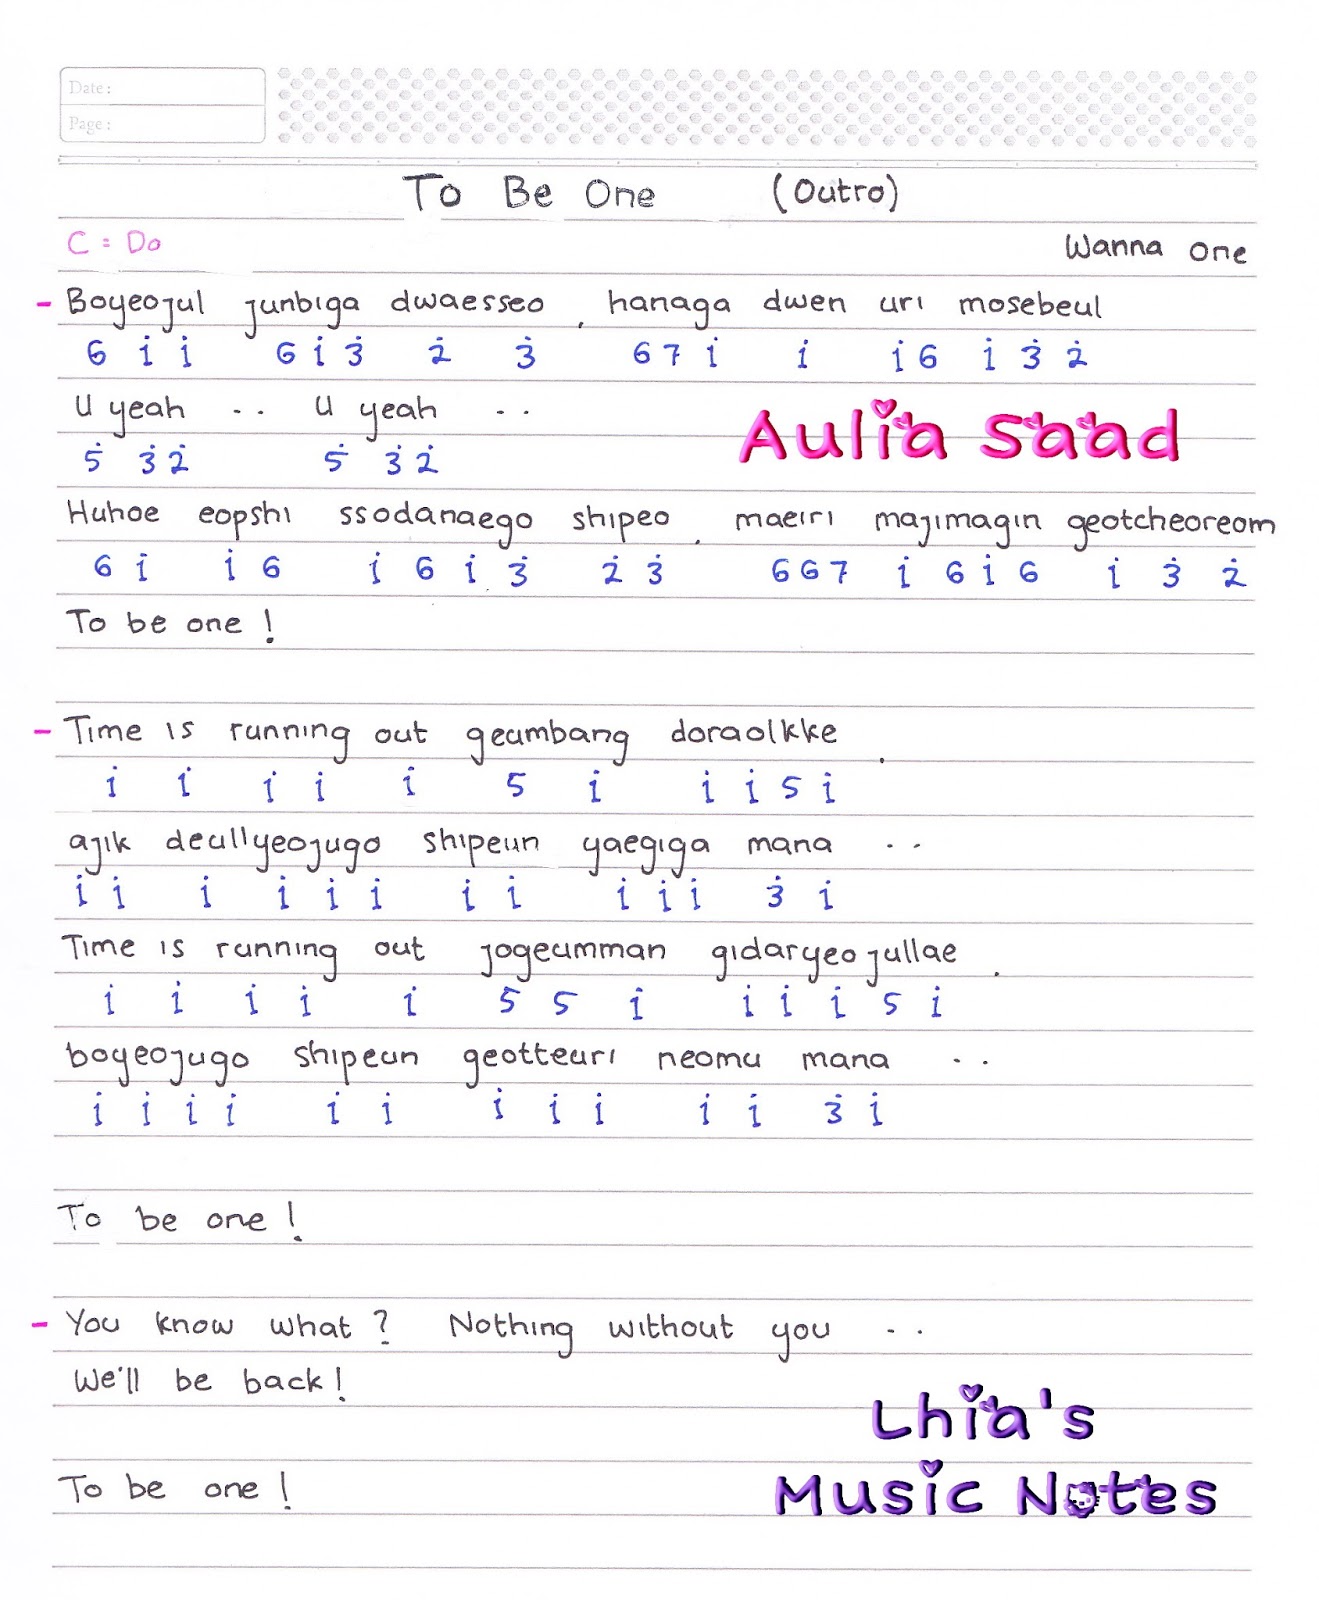 Date:
Page:
To Be One (Outro)
C = Do
Wanna One
- Boyeojul junbiga dwaesseo, hanaga dwen uri mosebeul
6 i̇ i̇ 6 i̇ 3̇ 2̇ 3̇ 6 7 i̇ i̇ i̇ 6 i̇ 3̇ 2̇
U yeah .. U yeah ..
5̇ 3̇ 2̇ 5̇ 3̇ 2̇
Aulia Saad
Huhoe eopshi ssodanaego shipeo, maeiri majimagin geotcheoreom
6 i̇ i̇ 6 i̇ 6 i̇ 3̇ 2̇ 3̇ 6 6 7 i̇ 6 i̇ 6 i̇ 3̇ 2̇
To be one!
- Time is running out geumbang doraolkke.
i̇ i̇ i̇ i̇ i̇ 5 i̇ i̇ i̇ 5 i̇
ajik deullyeojugo shipeun yaegiga mana ..
i̇ i̇ i̇ i̇ i̇ i̇ i̇ i̇ i̇ i̇ i̇ 3̇ i̇
Time is running out jogeumman gidaryeo jullae.
i̇ i̇ i̇ i̇ i̇ 5 5 i̇ i̇ i̇ i̇ 5 i̇
boyeojugo shipeun geotteuri neomu mana ..
i̇ i̇ i̇ i̇ i̇ i̇ i̇ i̇ i̇ i̇ i̇ 3̇ i̇
To be one!
- You know what? Nothing without you ..
We'll be back!
Lhia's
Music Notes
To be one!